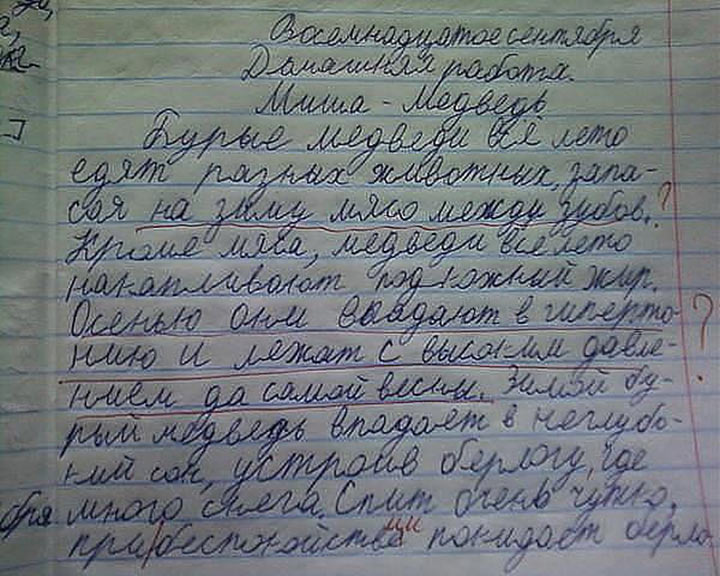 Восемнадцатое сентября
Домашняя работа.
Миша - Медведь
Бурые медведи всё лето
едят разных животных, запа-
сая на зиму мясо между зубов. ?
Кроме мяса, медведи всё лето
накапливают подкожный жир.
Осенью они впадают в гиперто- ?
нию и лежат с высоким давле-
нием до самой весны. Зимой бу-
рый медведь впадает в неглубо-
кий сон, устроив берлогу, где
бря много снега. Спит очень чутко,
при беспокойстве покидает берло